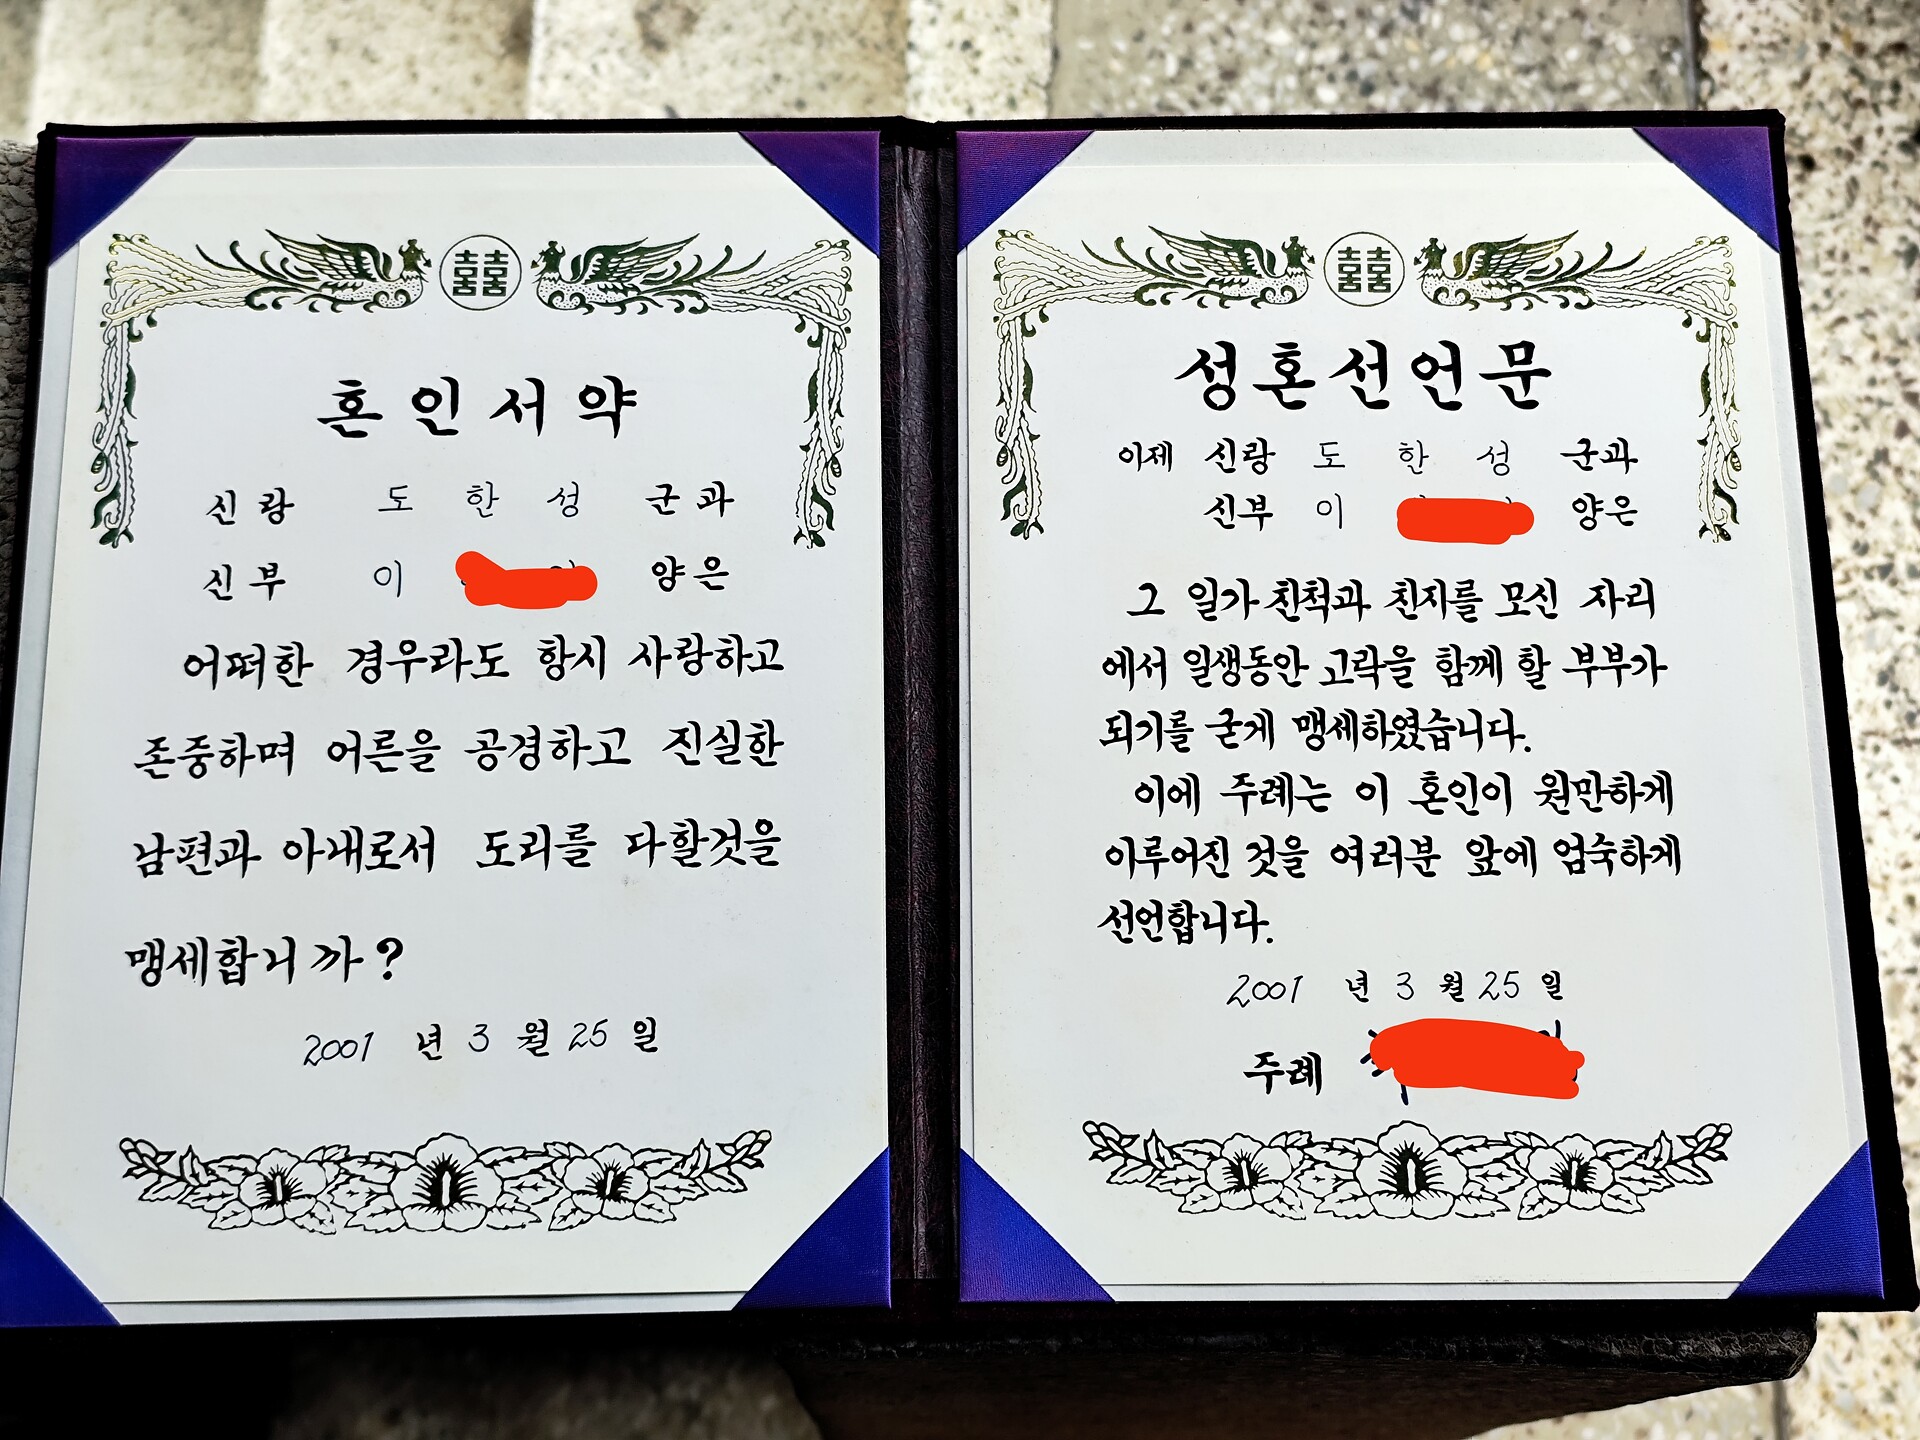 囍
혼인서약
신랑 도 한 성 군과
신부 이 양은
어떠한 경우라도 항시 사랑하고
존중하며 어른을 공경하고 진실한
남편과 아내로서 도리를 다할것을
맹세합니까?
2001 년 3 월 25 일
囍
성혼선언문
이제 신랑 도 한 성 군과
신부 이 양은
그 일가 친척과 친지를 모신 자리
에서 일생동안 고락을 함께 할 부부가
되기를 굳게 맹세하였습니다.
이에 주례는 이 혼인이 원만하게
이루어진 것을 여러분 앞에 엄숙하게
선언합니다.
2001 년 3 월 25 일
주례